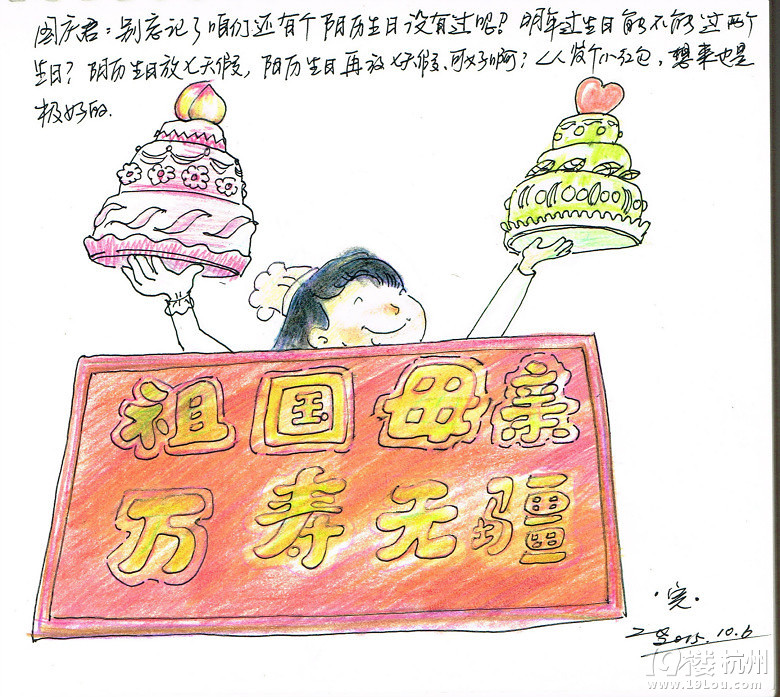 国庆君：别忘记了咱们还有个阴历生日没有过呢？明年过生日能不能过两个
生日？阳历生日放七天假，阴历生日再放七天假、可好啊？人人发个小红包，想来也是
极好的.
祖国母亲
万寿无疆
·完·
2015.10.6
19楼 杭州
www.19lou.com